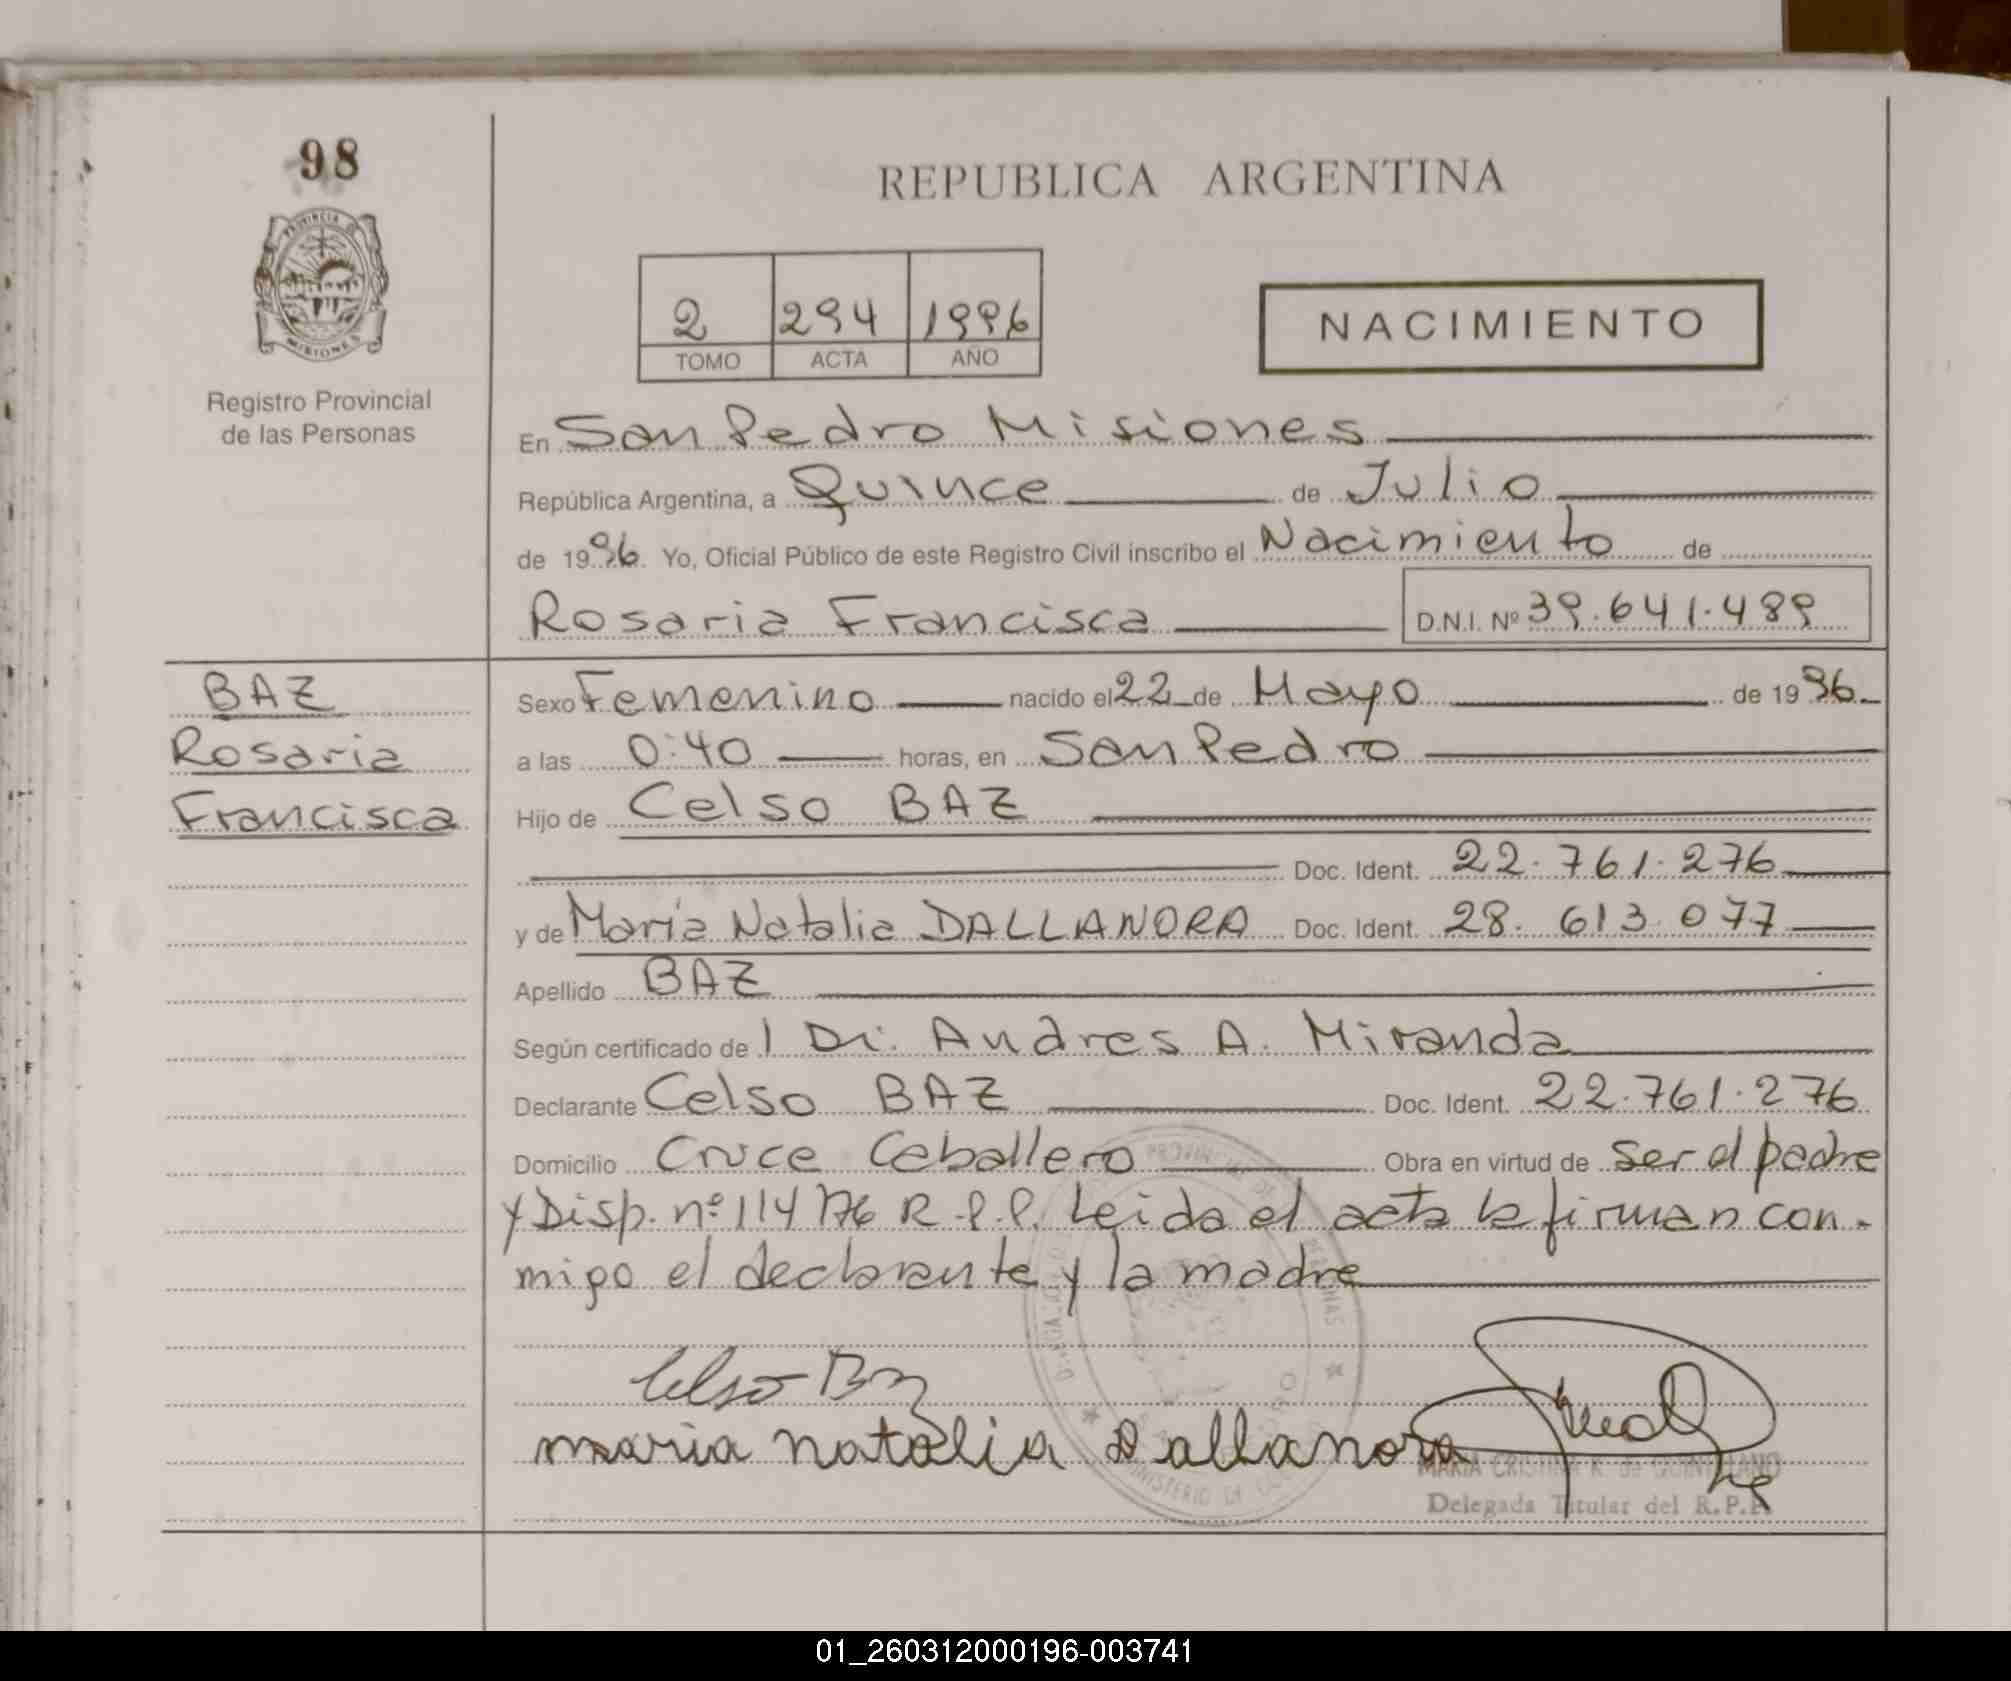 98
REPUBLICA ARGENTINA
PROVINCIA DE
MISIONES
Registro Provincial
de las Personas
2 294 1996
TOMO ACTA AÑO
NACIMIENTO
En San Pedro Misiones
República Argentina, a Quince de Julio
de 1996. Yo, Oficial Público de este Registro Civil inscribo el Nacimiento de
Rosaria Francisca D.N.I. Nº 39.641.489
BAZ
Rosaria
Francisca
Sexo Femenino nacido el 22 de Mayo de 1996
a las 0:40 horas, en San Pedro
Hijo de Celso BAZ
Doc. Ident. 22.761.276
y de María Natalia DALLANORA Doc. Ident. 28.613.077
Apellido BAZ
Según certificado del Dr. Andres A. Miranda
Declarante Celso BAZ Doc. Ident. 22.761.276
Domicilio Cruce Caballero Obra en virtud de ser el padre
y Disp. nº 114/76 R.P.P. Leida el acta la firman con-
migo el declarante y la madre
Celso Baz
maria natalia Dallanora
MARIA CRISTINA R. de
Delegada Titular del R.P.P.
01_260312000196-003741